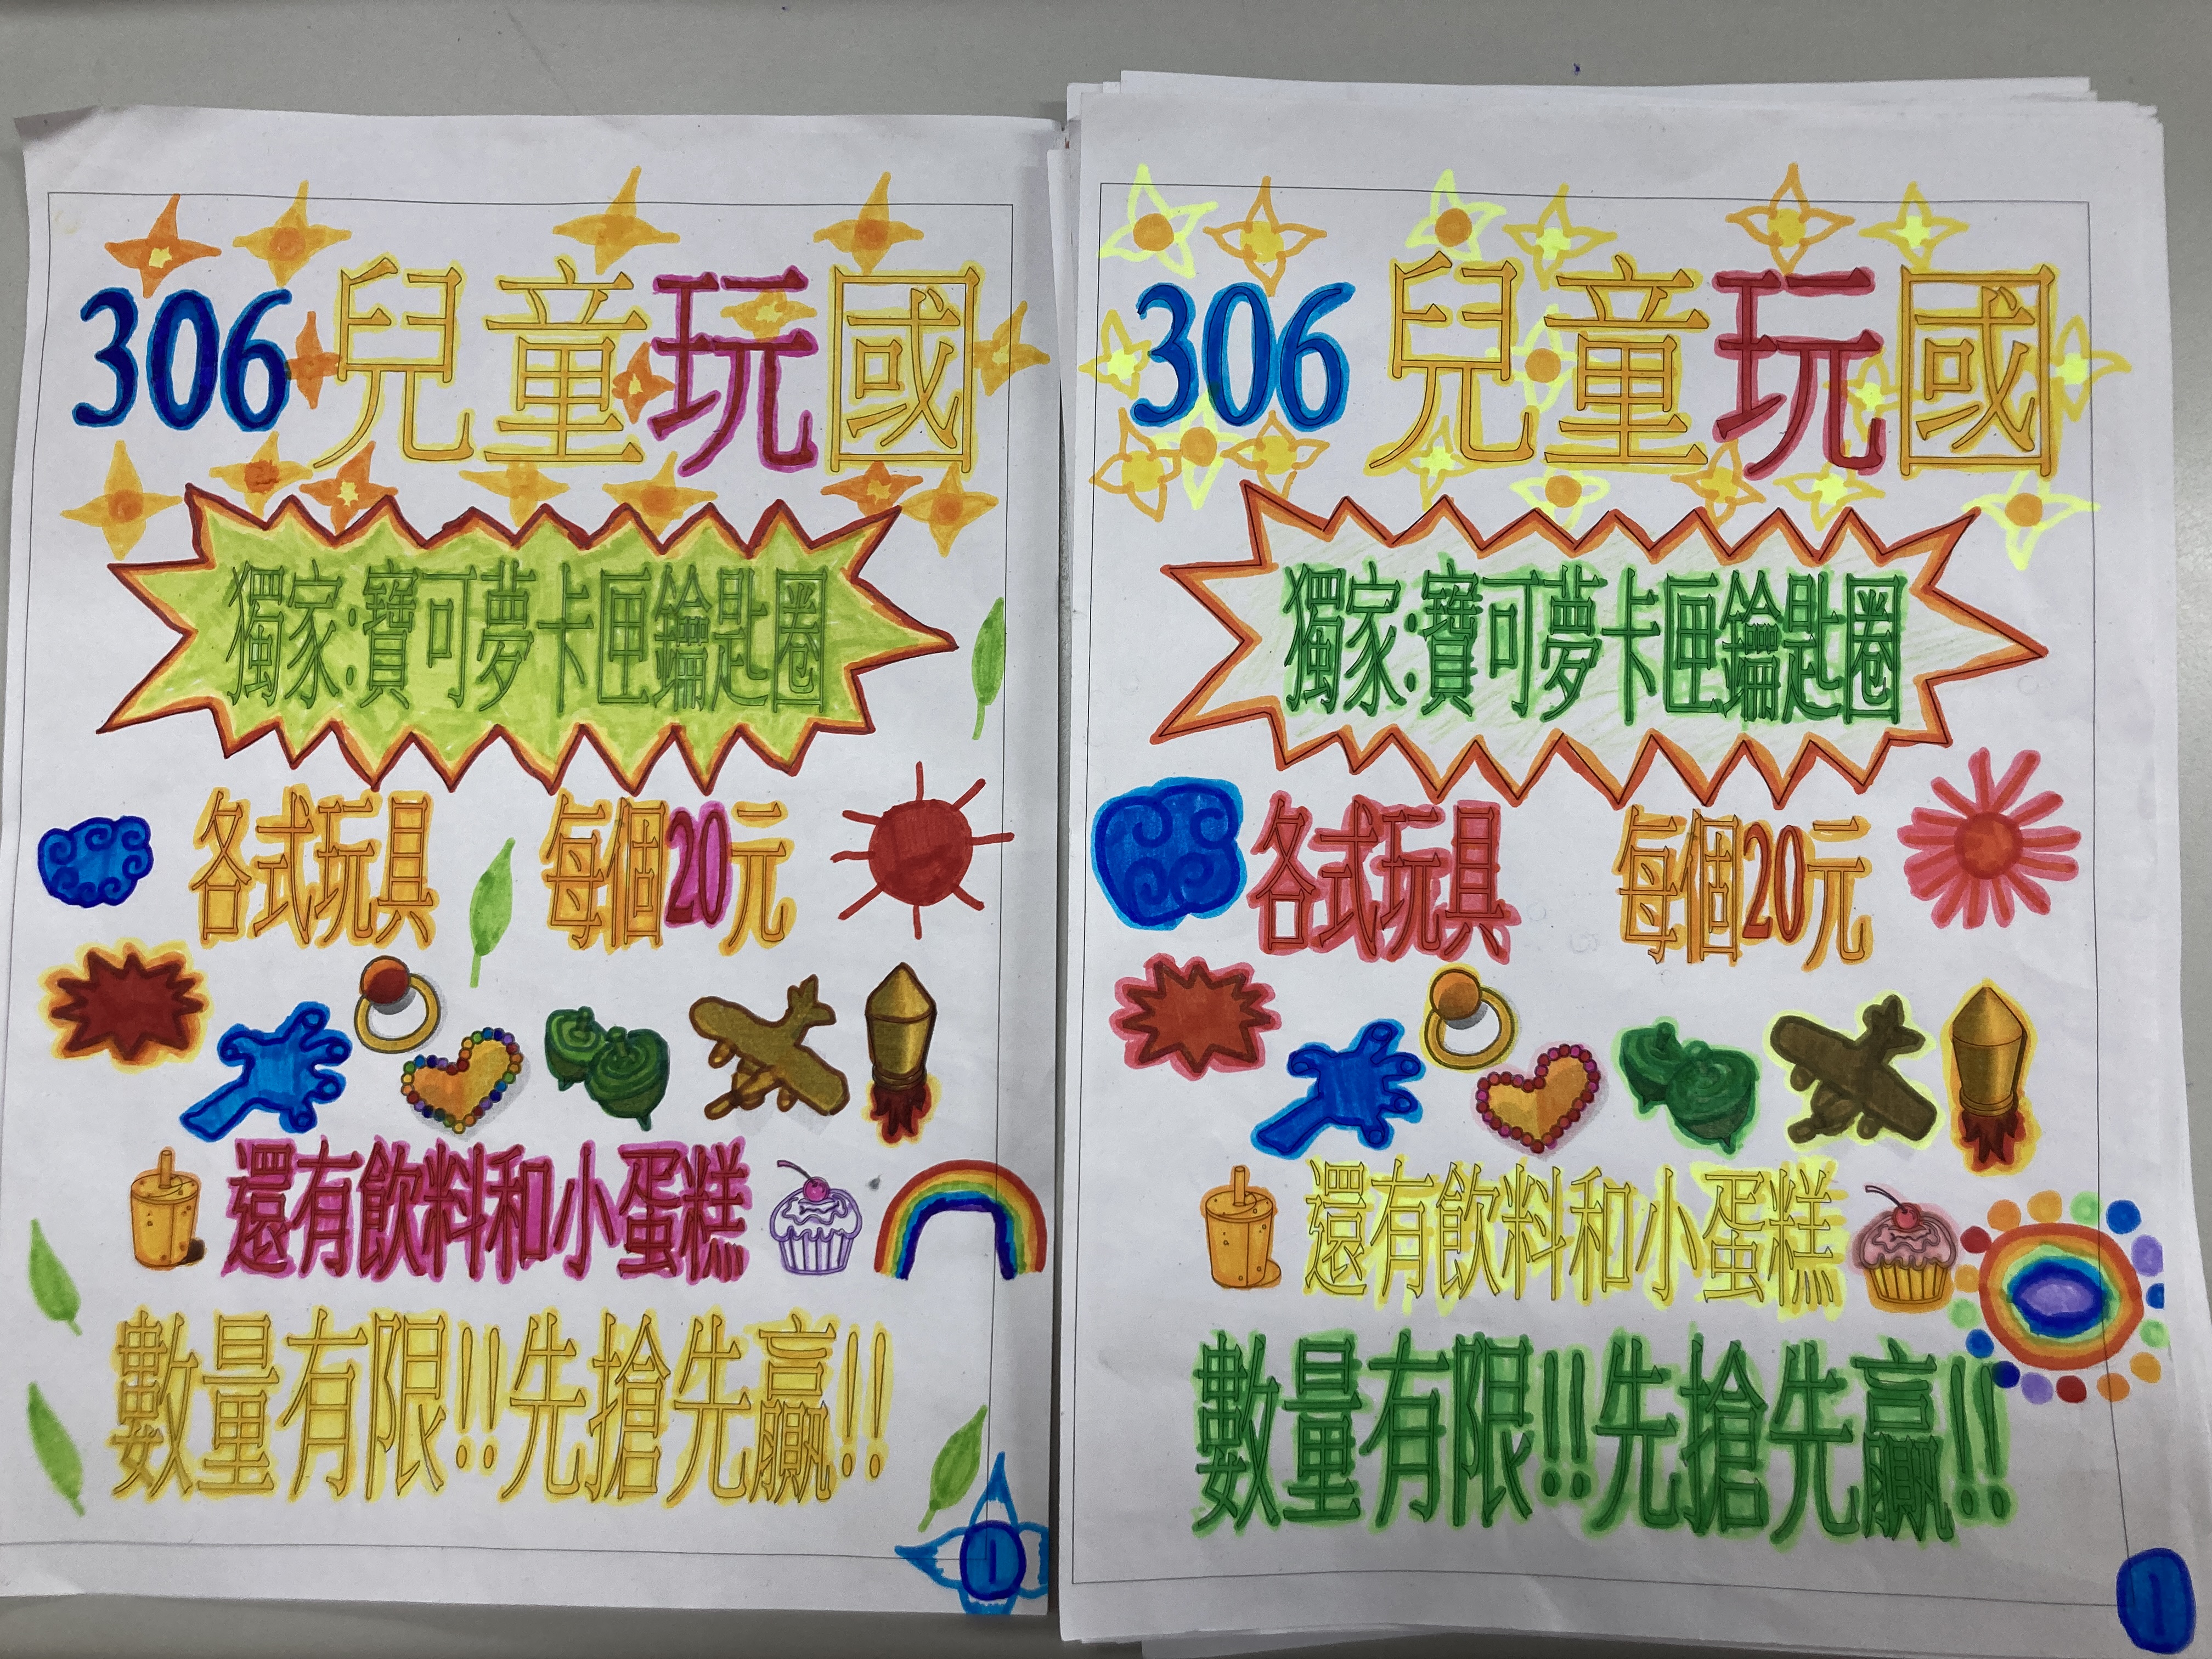 306兒童玩國
獨家:寶可夢卡匣鑰匙圈
各式玩具 每個20元
還有飲料和小蛋糕
數量有限!!先搶先贏!!
306兒童玩國
獨家:寶可夢卡匣鑰匙圈
各式玩具 每個20元
還有飲料和小蛋糕
數量有限!!先搶先贏!!